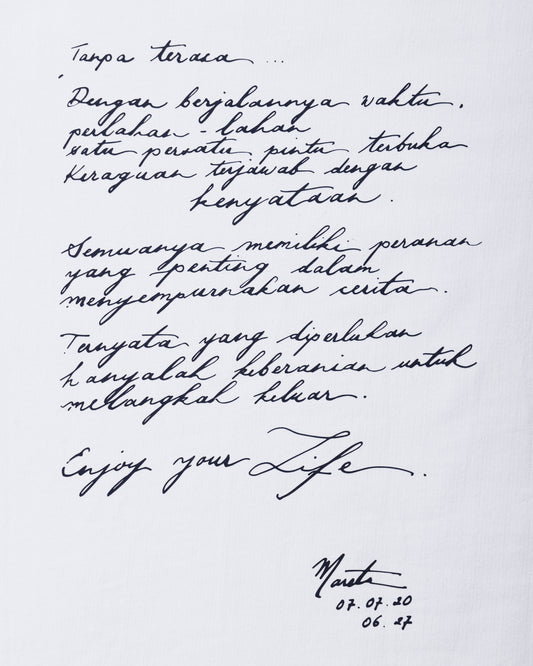 Tanpa terasa ...
Dengan berjalannya waktu,
perlahan - lahan
satu persatu pintu terbuka
Keraguan terjawab dengan
kenyataan.
Semuanya memiliki peranan
yang penting dalam
menyempurnakan cerita.
Ternyata yang diperlukan
hanyalah keberanian untuk
melangkah keluar.
Enjoy your Life.
07.07.20
06.27